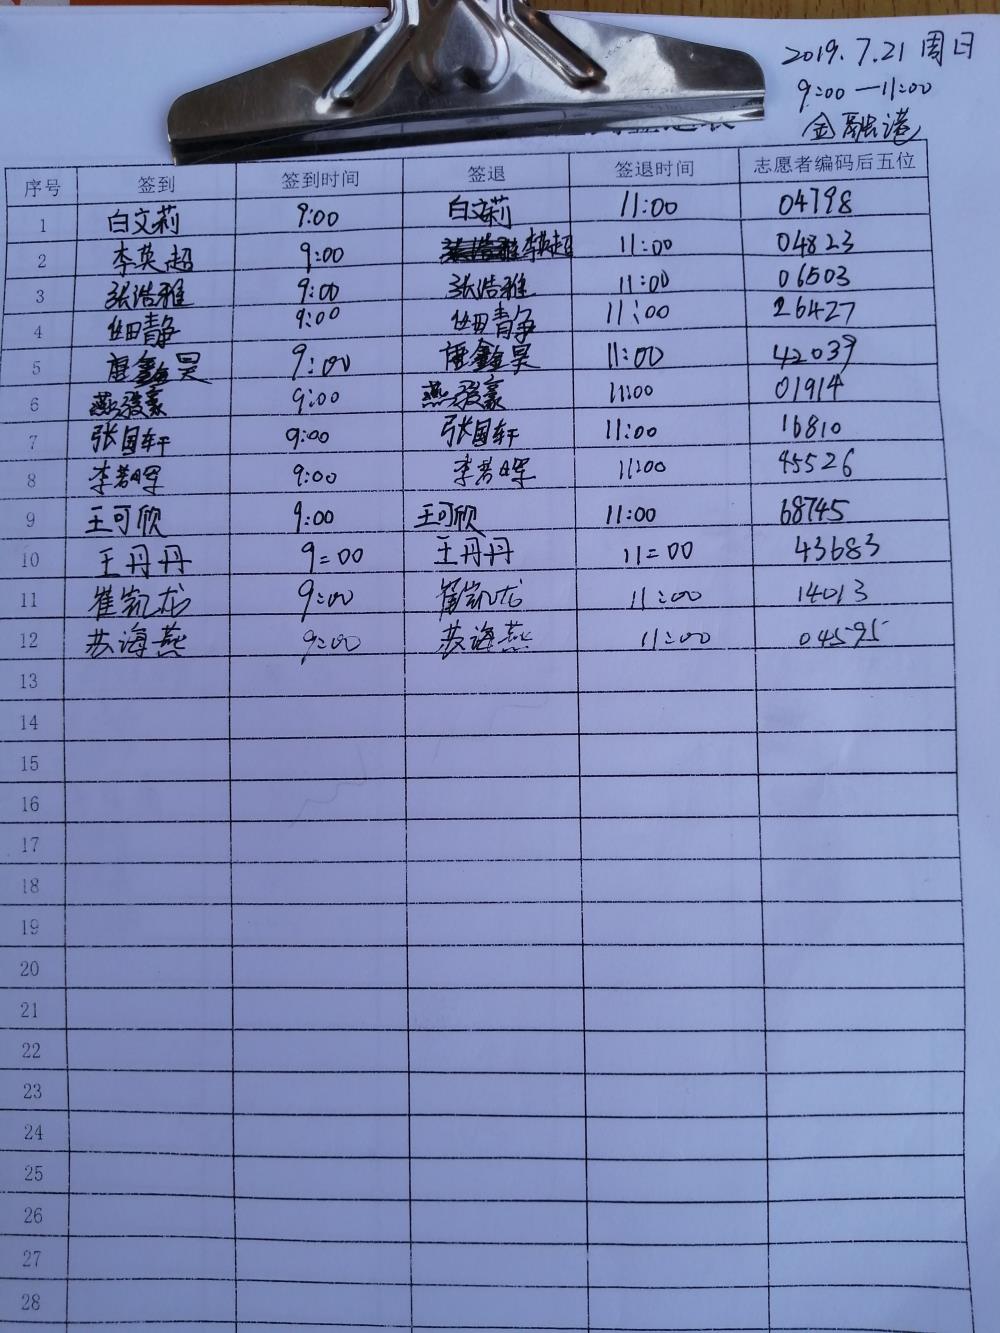 2019.7.21 周日
9:00—11:00
金融港
序号 签到 签到时间 签退 签退时间 志愿者编码后五位
1 白文莉 9:00 白文莉 11:00 04798
2 李英超 9:00 李英超 11:00 04823
3 张浩雅 9:00 张浩雅 11:00 06503
4 静 9:00 静 11:00 26427
5 唐鑫昊 9:00 唐鑫昊 11:00 42039
6 燕骏豪 9:00 燕骏豪 11:00 01914
7 张国轩 9:00 张国轩 11:00 16810
8 李若晖 9:00 李若晖 11:00 45526
9 王可欣 9:00 王可欣 11:00 68745
10 王丹丹 9=00 王丹丹 11=00 43683
11 崔凯龙 9:00 崔凯龙 11:00 14013
12 苏海燕 9:00 苏海燕 11:00 04595
13
14
15
16
17
18
19
20
21
22
23
24
25
26
27
28